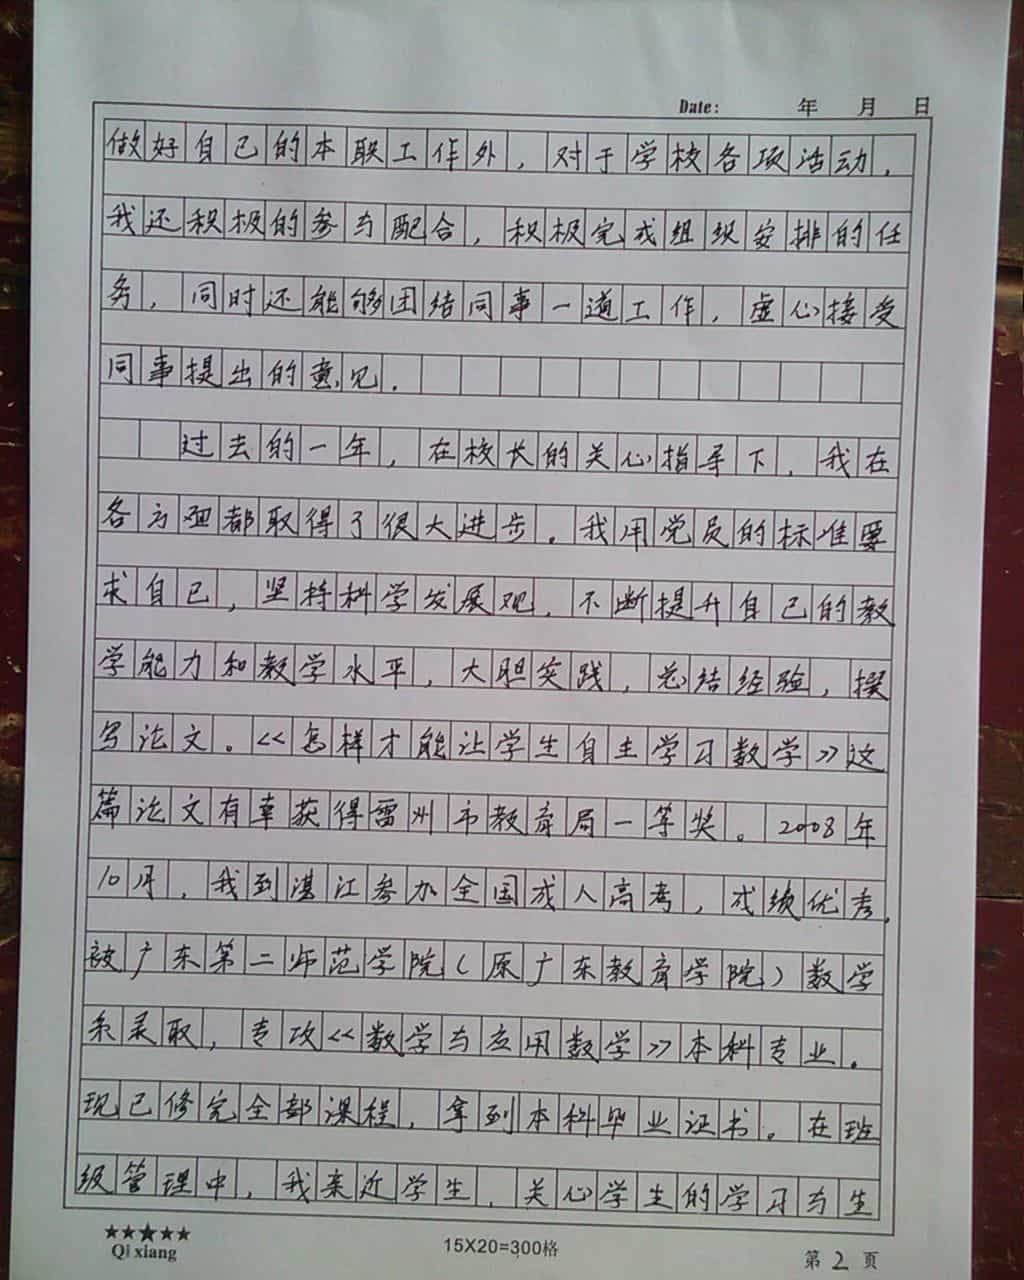 Date: 年 月 日
做好自己的本职工作外，对于学校各项活动，
我还积极的参与配合，积极完成组级安排的任
务，同时还能够团结同事一道工作，虚心接受
同事提出的意见.
过去的一年，在校长的关心指导下，我在
各方面都取得了很大进步。我用党员的标准要
求自己，坚持科学发展观，不断提升自己的教
学能力和教学水平，大胆实践，总结经验，撰
写论文。<<怎样才能让学生自主学习数学>>这
篇论文有幸获得雷州市教育局一等奖。2008年
10月，我到湛江参加全国成人高考，成绩优秀，
被广东第二师范学院（原广东教育学院）数学
系录取，专攻<<数学与应用数学>>本科专业。
现已修完全部课程，拿到本科毕业证书。在班
级管理中，我亲近学生，关心学生的学习与生
★★★★★
Qi xiang
15X20=300格
第 2 页